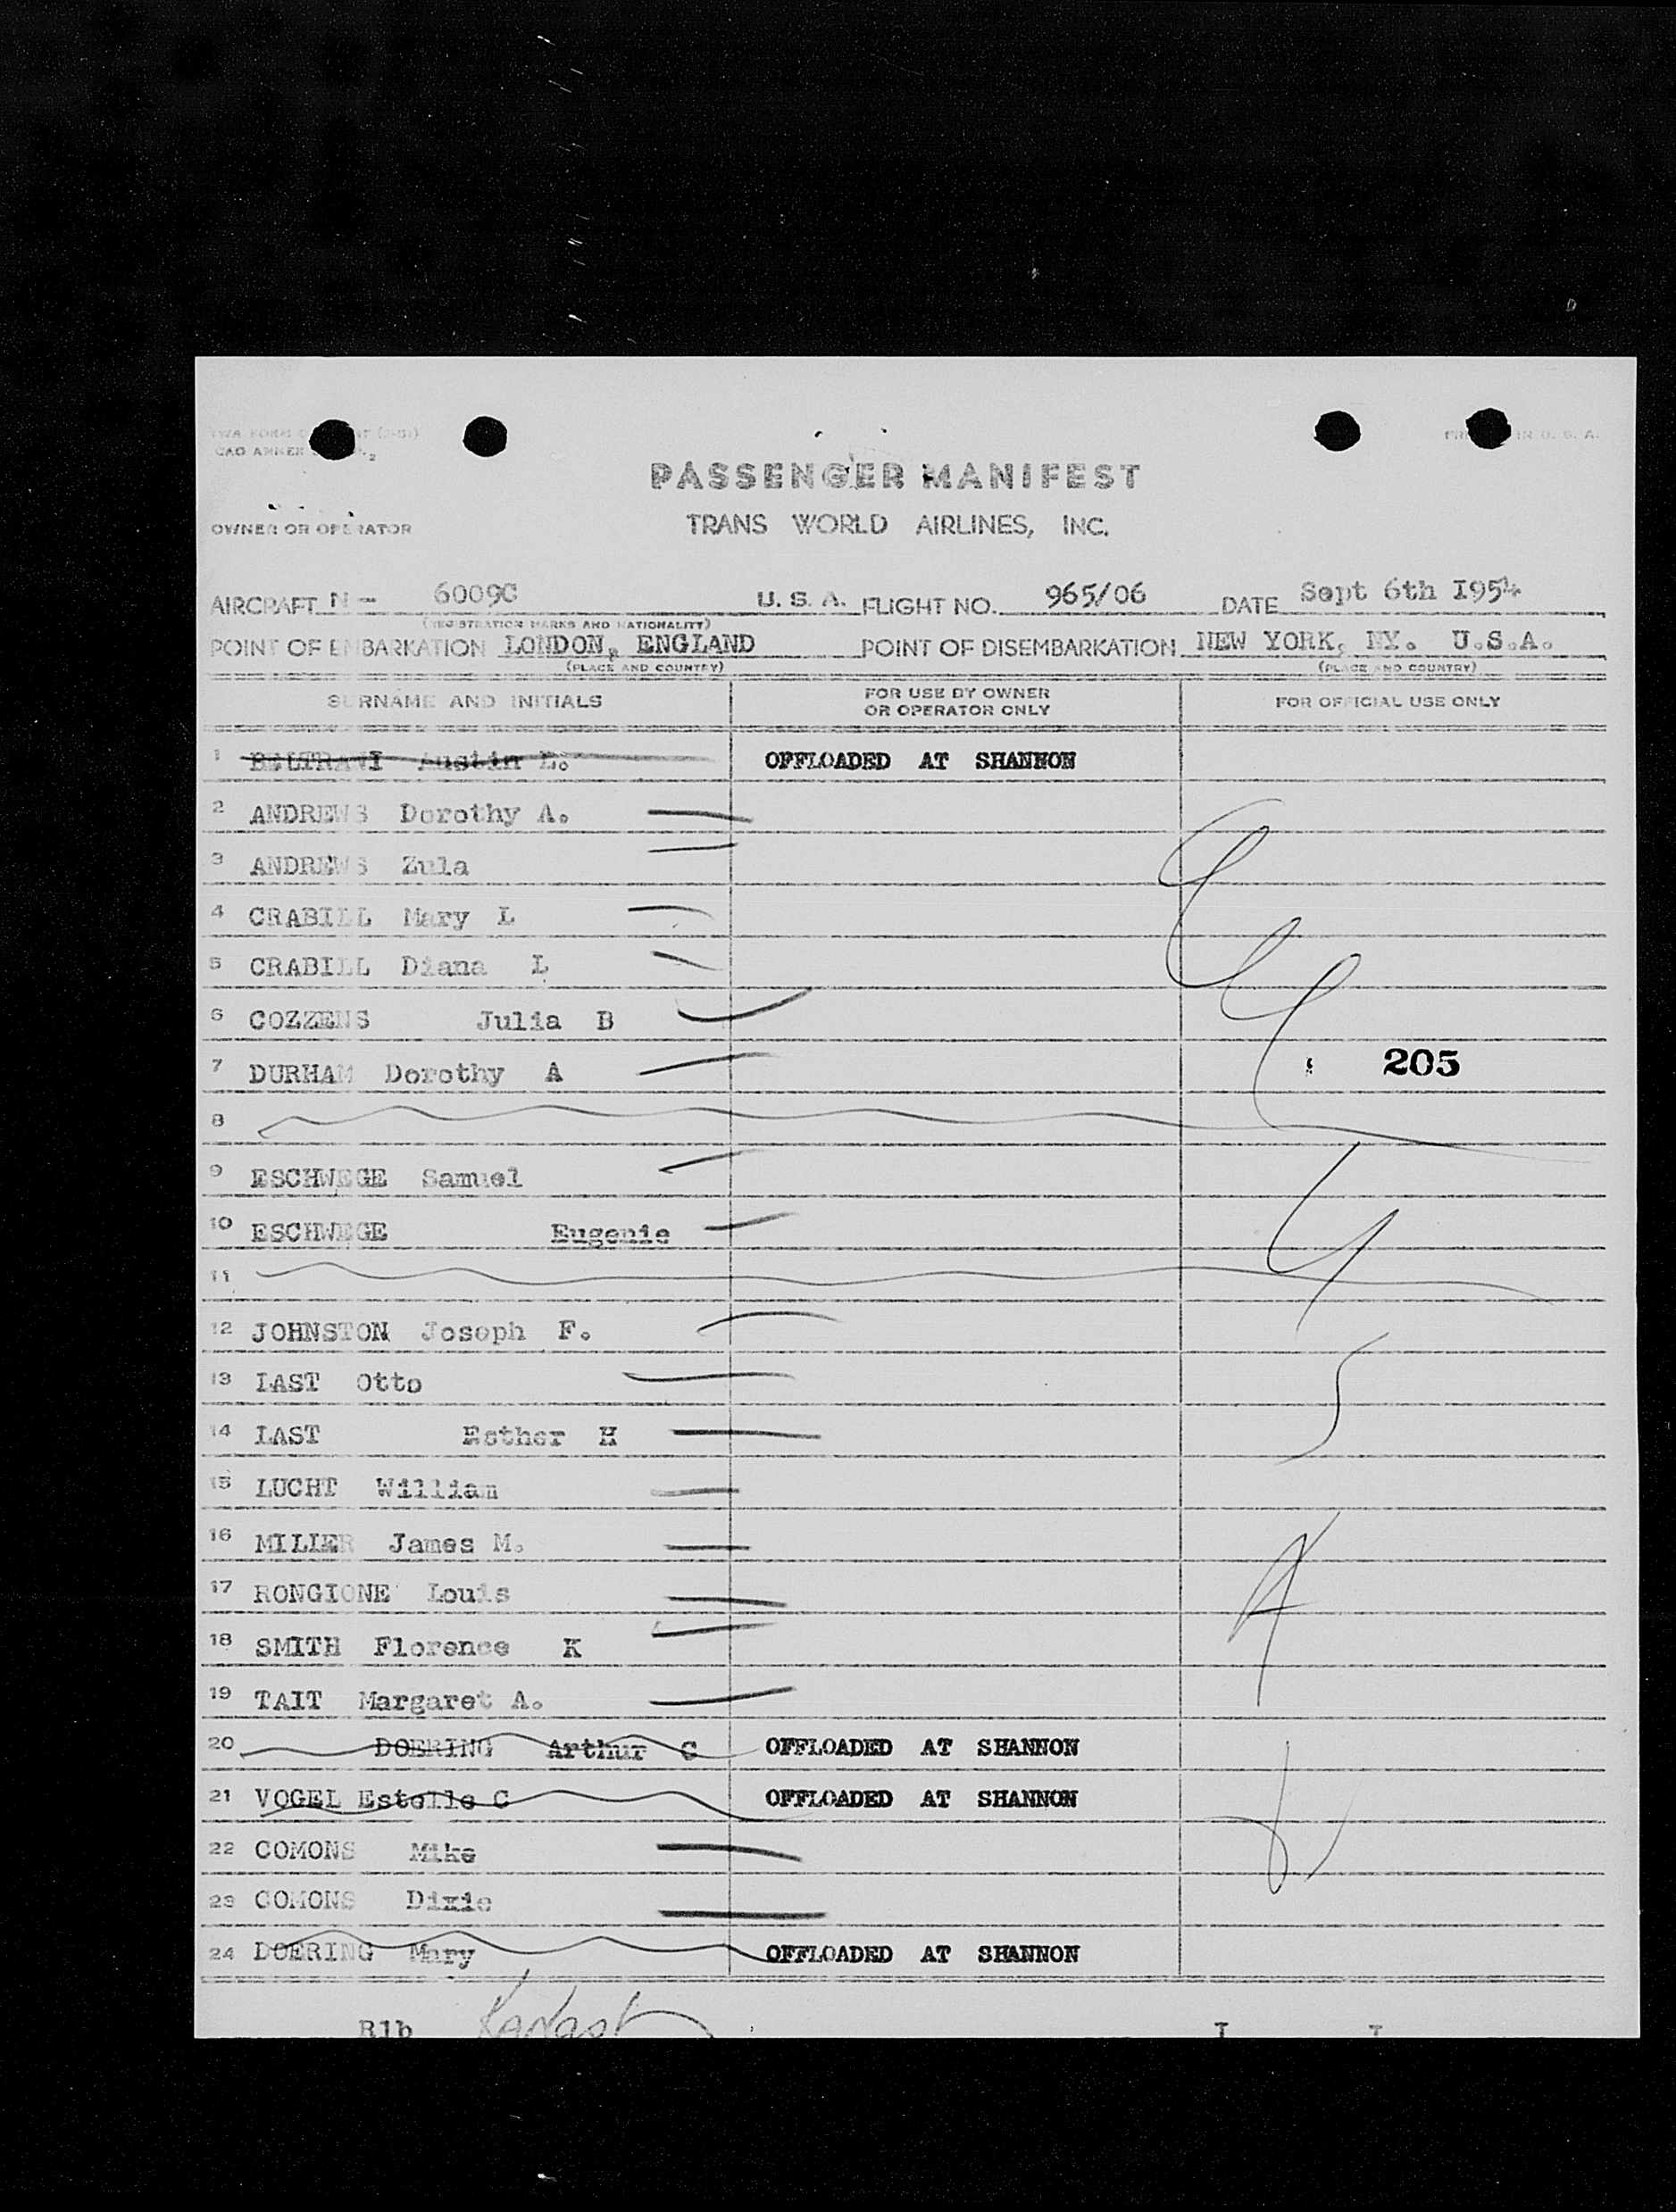 PRINTED IN U. S. A.
PASSENGER MANIFEST
OWNER OR OPERATOR TRANS WORLD AIRLINES, INC.
AIRCRAFT N - 6009C U. S. A. FLIGHT NO. 965/06 DATE Sept 6th I954
(REGISTRATION MARKS AND NATIONALITY)
POINT OF EMBARKATION LONDON, ENGLAND POINT OF DISEMBARKATION NEW YORK, NY. U.S.A.
(PLACE AND COUNTRY) (PLACE AND COUNTRY)
SURNAME AND INITIALS FOR USE BY OWNER OR OPERATOR ONLY FOR OFFICIAL USE ONLY
1 BELTRANI Austin E. OFFLOADED AT SHANNON
2 ANDREWS Dorothy A.
3 ANDREWS Zula
4 CRABILL Mary L
5 CRABILL Diana L
6 COZZENS Julia B
7 DURHAM Dorothy A 205
8
9 ESCHWEGE Samuel
10 ESCHWEGE Eugenie
11
12 JOHNSTON Joseph F.
13 LAST Otto
14 LAST Esther H
15 LUCHT William
16 MILLER James M.
17 RONGIONE Louis
18 SMITH Florence K
19 TAIT Margaret A.
20 DOERING Arthur C OFFLOADED AT SHANNON
21 VOGEL Estelle C OFFLOADED AT SHANNON
22 COMONS Mike
23 COMONS Dixie
24 DOERING Mary OFFLOADED AT SHANNON
R1b